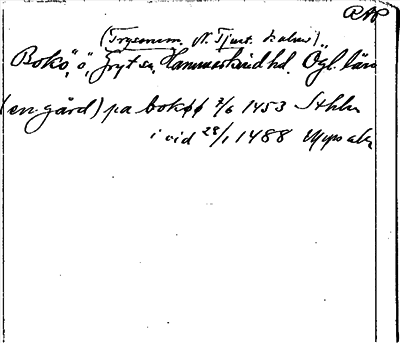 RAP
(Tryserum, N. Tjust. Kalm.)
Bokö, ö, Gryt sn, Hammarkind hd. Ögl. län
(en gård) pa bokøø 7/6 1453 Sthlm
i vid 28/1 1488 Uppsala